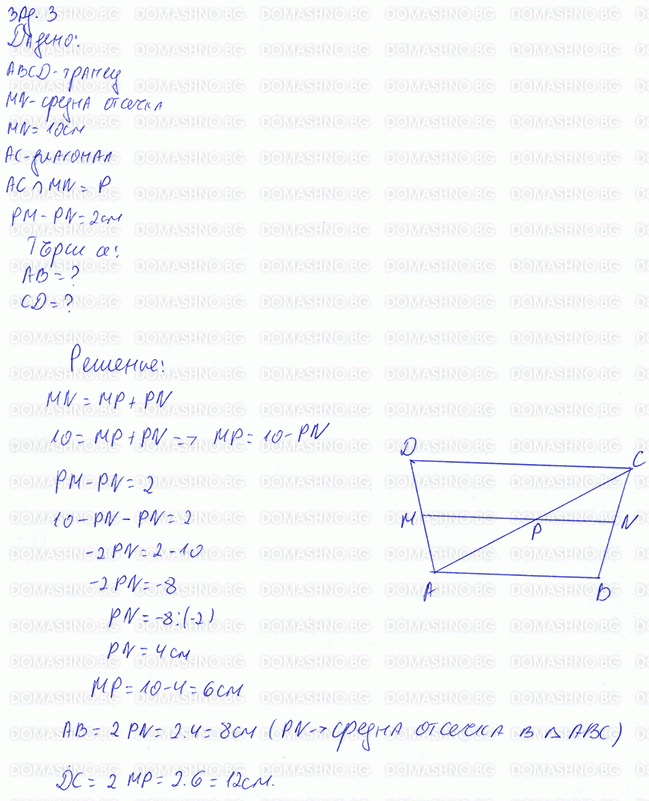 зад. 3
Дадено:
ABCD-трапец
MN-средна отсечка
MN= 10см
AC-диагонал
AC ∩ MN = P
PM - PN = 2см
Търси се:
AB = ?
CD = ?
Решение:
MN = MP + PN
10 = MP + PN => MP = 10 - PN
PM - PN = 2
10 - PN - PN = 2
-2PN = 2 - 10
-2PN = -8
PN = -8:(-2)
PN = 4см
MP = 10-4 = 6см
AB = 2 PN = 2.4 = 8см (PN → средна отсечка в △ ABC)
DC = 2 MP = 2.6 = 12см.
D
C
M
P
N
A
B
DOMASHNO.BG